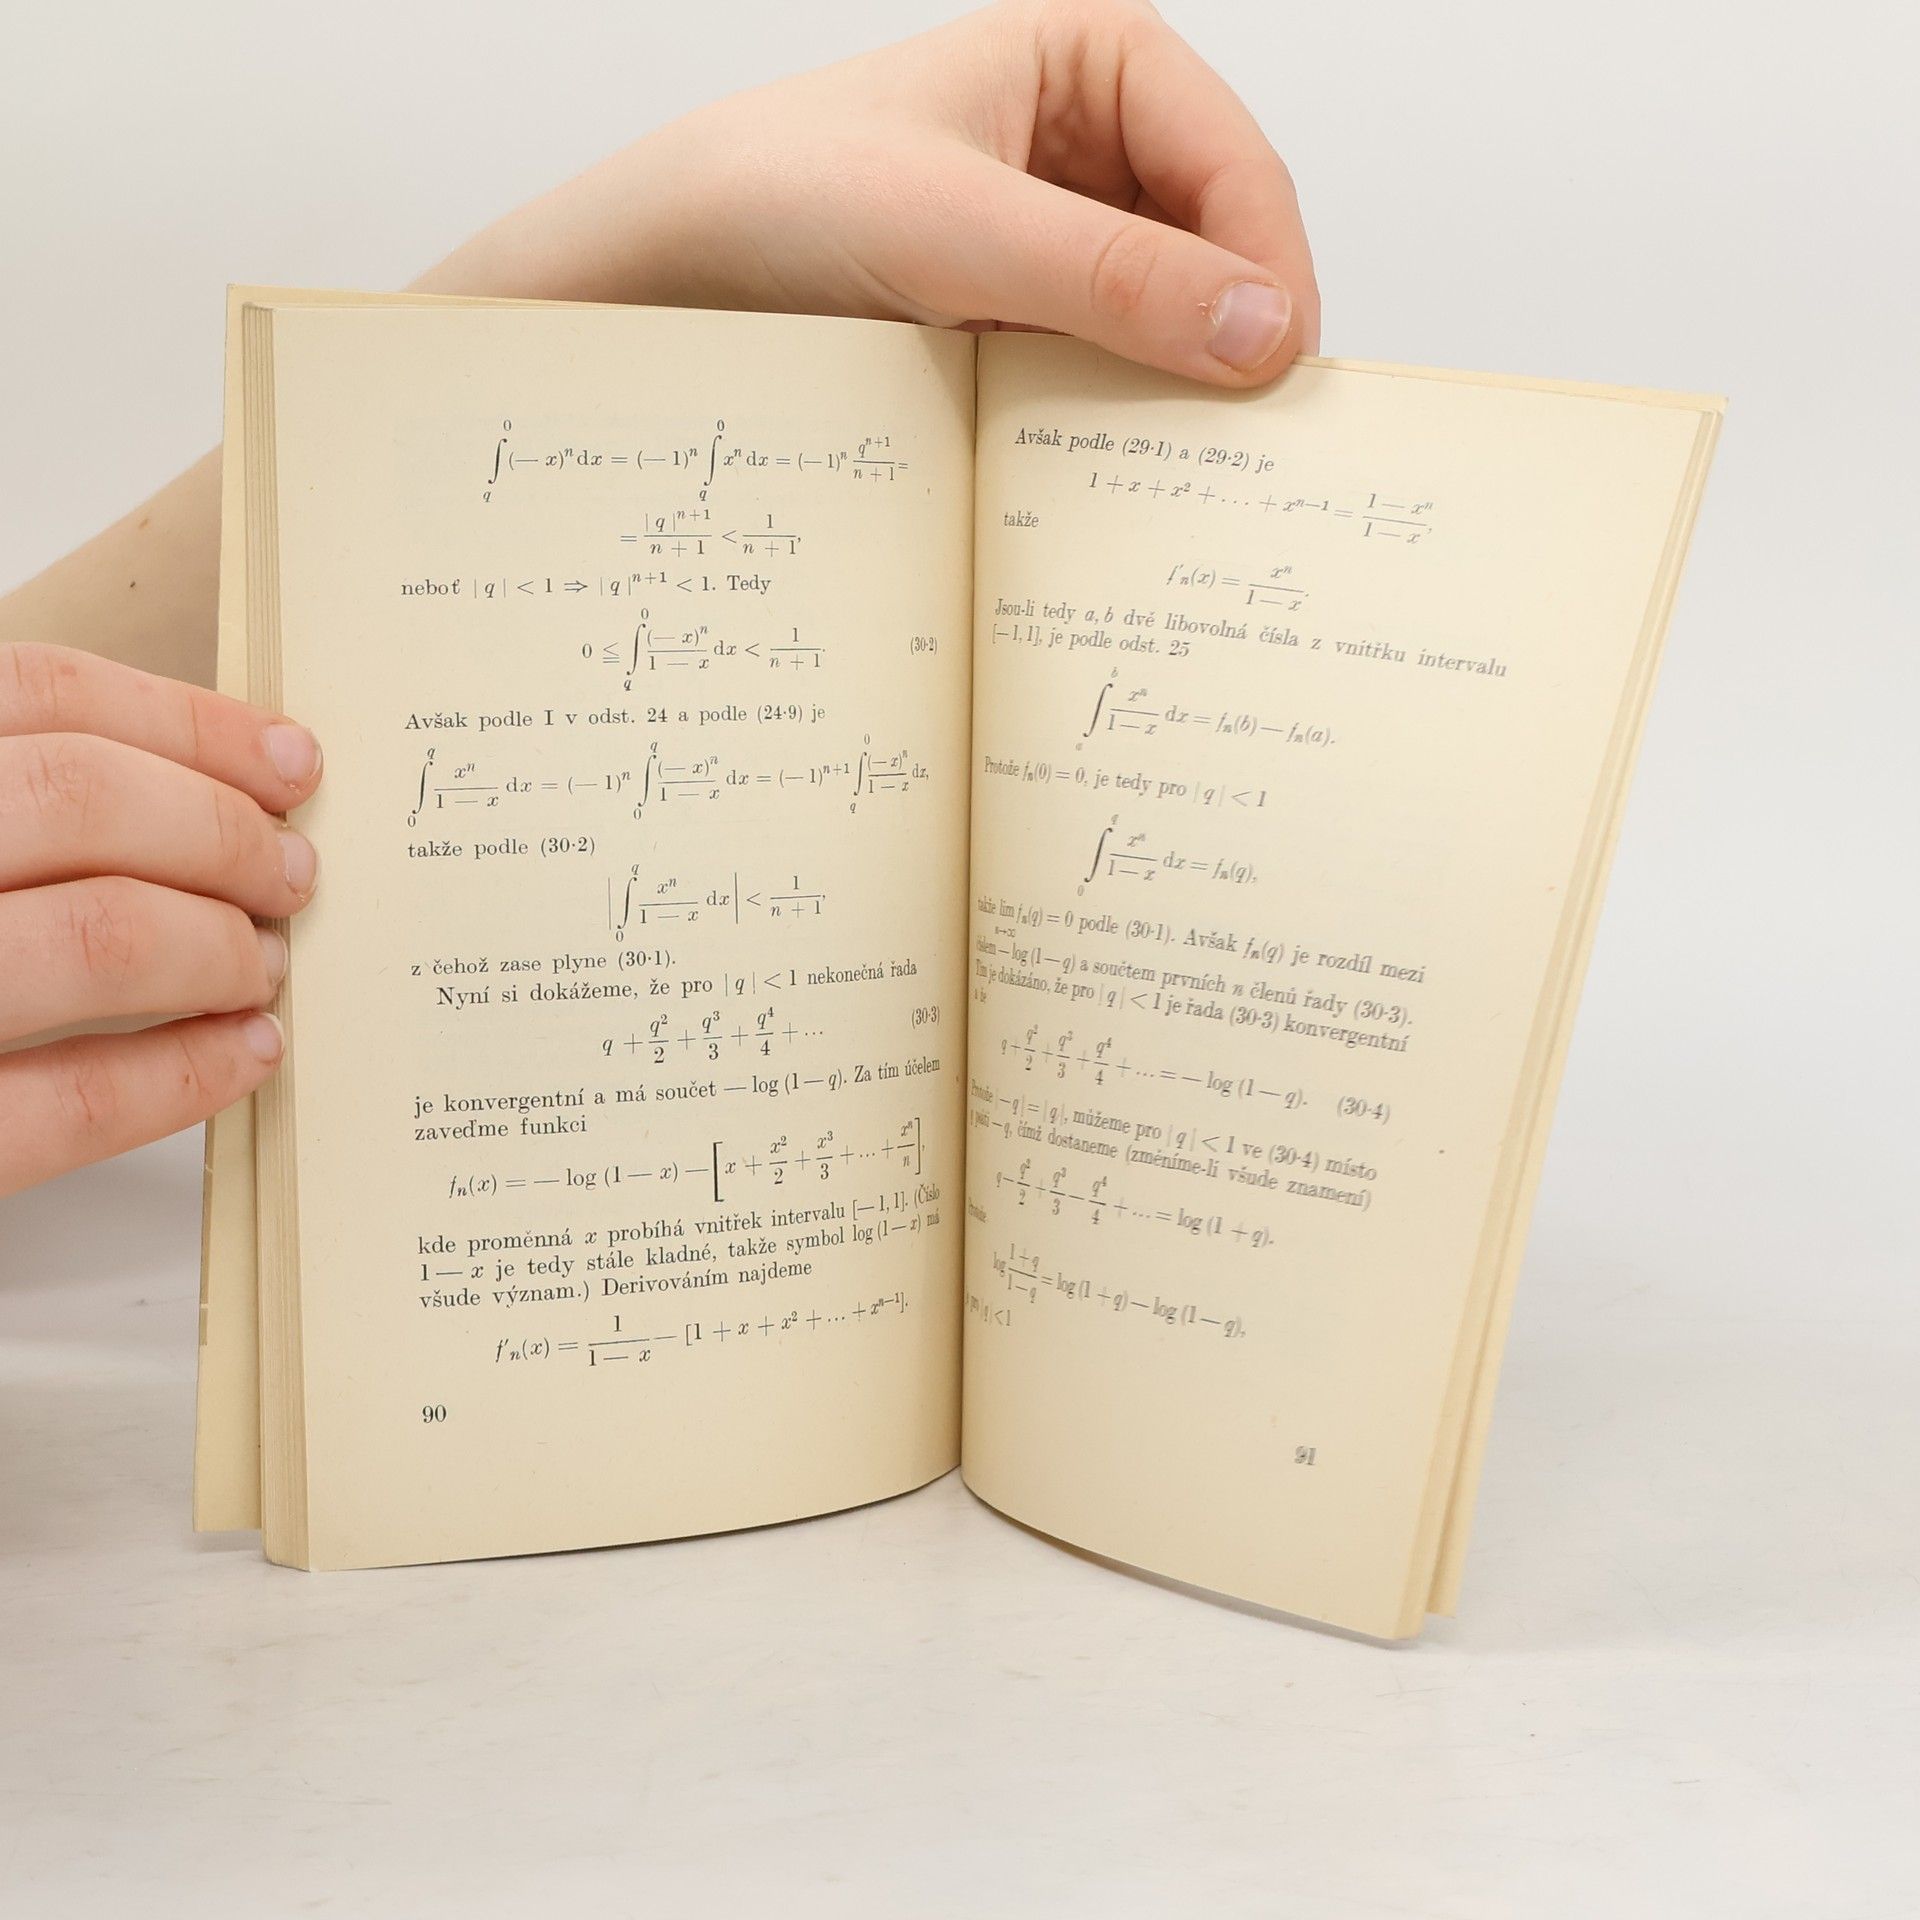 ∫_q^0 (— x)^n dx = (— 1)^n ∫_q^0 x^n dx = (— 1)^n q^{n+1}/(n + 1) =
= | q |^{n+1}/(n + 1) < 1/(n + 1),
neboť | q | < 1 ⇒ | q |^{n+1} < 1. Tedy
0 ≦ ∫_q^0 (— x)^n/(1 — x) dx < 1/(n + 1). (30·2)
Avšak podle I v odst. 24 a podle (24·9) je
∫_0^q x^n/(1 — x) dx = (— 1)^n ∫_0^q (— x)^n/(1 — x) dx = (— 1)^{n+1} ∫_q^0 (— x)^n/(1 — x) dx,
takže podle (30·2)
| ∫_0^q x^n/(1 — x) dx | < 1/(n + 1),
z čehož zase plyne (30·1).
Nyní si dokážeme, že pro | q | < 1 nekonečná řada
q + q²/2 + q³/3 + q⁴/4 + ... (30·3)
je konvergentní a má součet — log (1 — q). Za tím účelem
zaveďme funkci
f_n(x) = — log (1 — x) — [x + x²/2 + x³/3 + ... + x^n/n],
kde proměnná x probíhá vnitřek intervalu [— 1, 1]. (Číslo
1 — x je tedy stále kladné, takže symbol log (1 — x) má
všude význam.) Derivováním najdeme
f'_n(x) = 1/(1 — x) — [1 + x + x² + ... + x^{n—1}].
90
Avšak podle (29·1) a (29·2) je
1 + x + x² + ... + x^{n—1} = (1 — x^n)/(1 — x),
takže
f'_n(x) = x^n/(1 — x).
Jsou-li tedy a, b dvě libovolná čísla z vnitřku intervalu
[— 1, 1], je podle odst. 25
∫_a^b x^n/(1 — x) dx = f_n(b) — f_n(a).
Protože f_n(0) = 0, je tedy pro | q | < 1
∫_0^q x^n/(1 — x) dx = f_n(q),
takže lim_{n→∞} f_n(q) = 0 podle (30·1). Avšak f_n(q) je rozdíl mezi
číslem — log (1 — q) a součtem prvních n členů řady (30·3).
Tím je dokázáno, že pro | q | < 1 je řada (30·3) konvergentní
a že
q + q²/2 + q³/3 + q⁴/4 + ... = — log (1 — q). (30·4)
Protože | — q | = | q |, můžeme pro | q | < 1 ve (30·4) místo
q psáti — q, čímž dostaneme (změníme-li všude znamení)
q — q²/2 + q³/3 — q⁴/4 + ... = log (1 + q).
Protože
log (1 + q)/(1 — q) = log (1 + q) — log (1 — q),
je pro | q | < 1
91